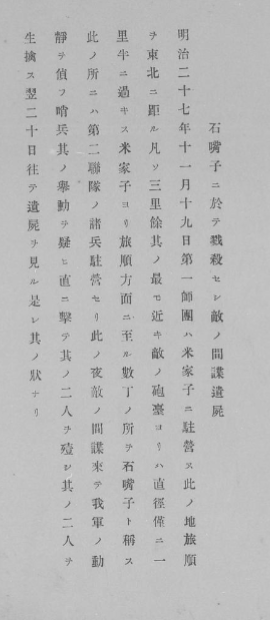 石嘴子ニ於テ戮殺セシ敵ノ間諜遺屍
明治二十七年十一月十九日第一師團ハ米家子ニ駐營ス此ノ地旅順
ヲ東北ニ距ル凡ソ三里餘其ノ最モ近キ敵ノ砲臺ヨリハ直徑僅ニ一
里半ニ過キス米家子ヨリ旅順方面ニ至ル數丁ノ所ヲ石嘴子ト稱ス
此ノ所ニハ第二聯隊ノ諸兵駐營セリ此ノ夜敵ノ間諜來テ我軍ノ動
靜ヲ偵フ哨兵其ノ擧動ヲ疑ヒ直ニ擊テ其ノ二人ヲ殪シ其ノ二人ヲ
生擒ス翌二十日往テ遺屍ヲ見ル是レ其ノ狀ナリ